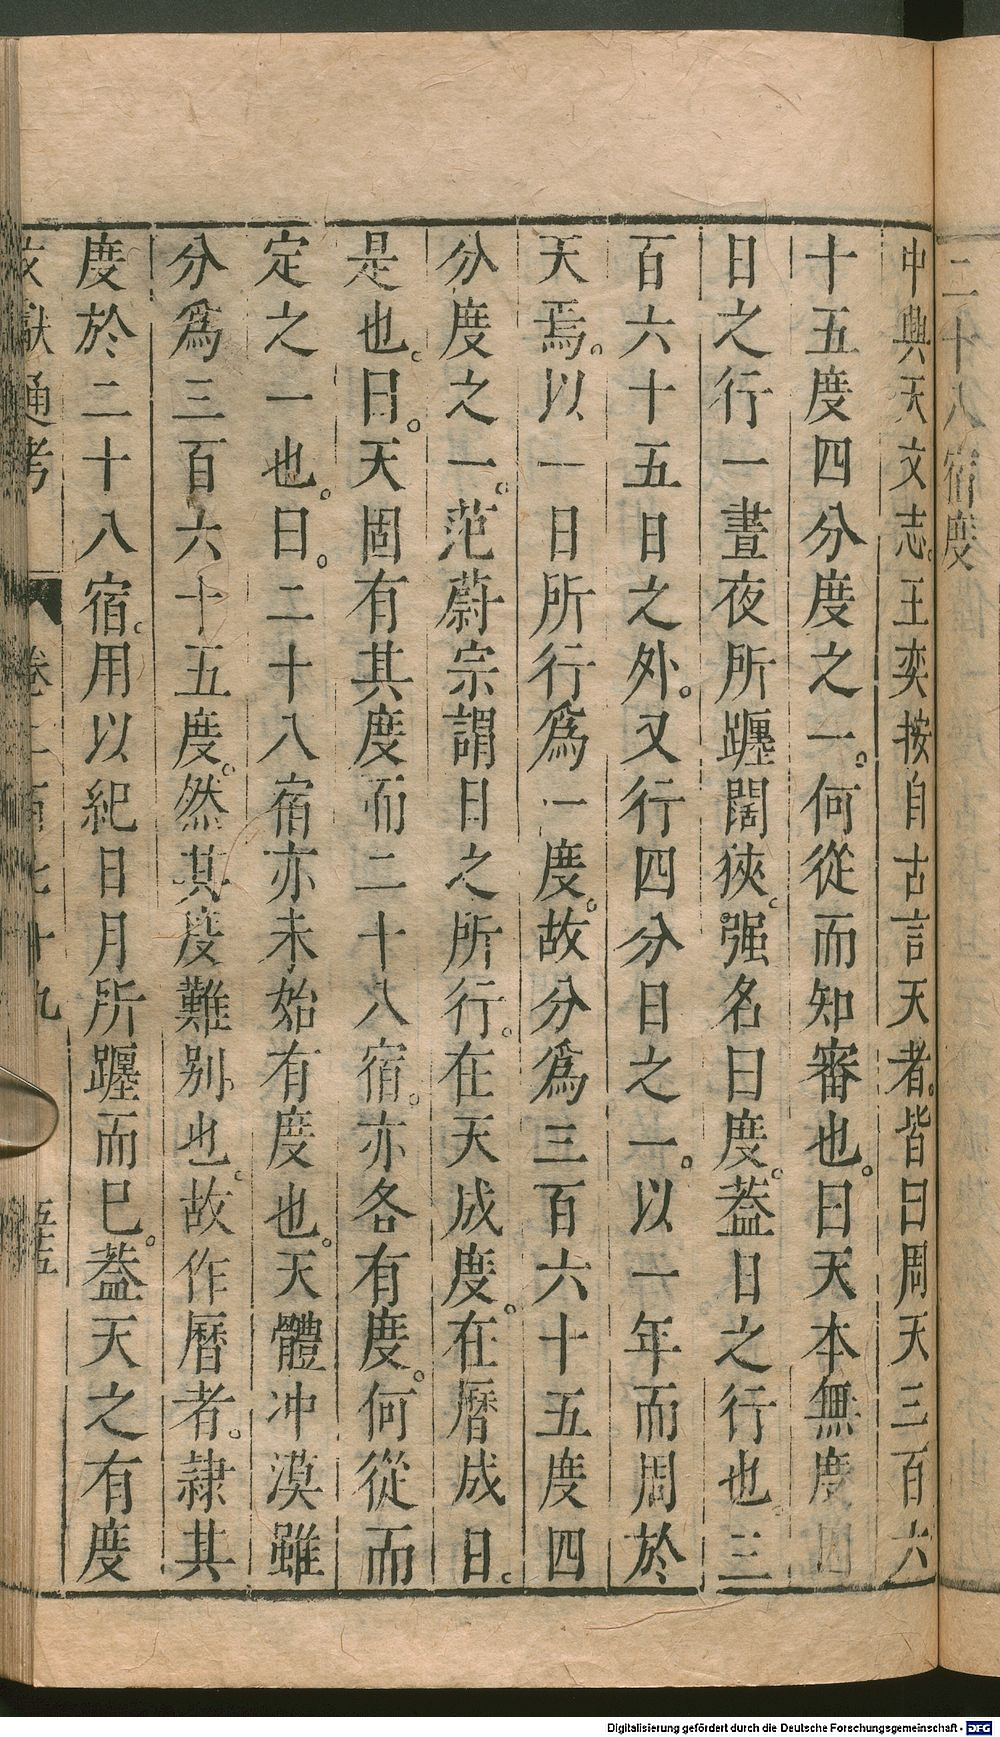 二十八宿度
中興天文志。王奕按自古言天者。皆曰周天三百六
十五度四分度之一。何從而知審也。曰天本無度因
日之行一晝夜所躔闊狹。强名曰度。蓋日之行也。三
百六十五日之外。又行四分日之一。以一年而周於
天焉。以一日所行爲一度。故分爲三百六十五度四
分度之一。范蔚宗謂日之所行。在天成度。在曆成日。
是也。曰。天固有其度而二十八宿。亦各有度。何從而
定之一也。曰。二十八宿亦未始有度也。天體冲漠雖
分爲三百六十五度。然其度難别也。故作曆者。隷其
度於二十八宿。用以紀日月所躔而巳。蓋天之有度
文獻通考 卷二百七十九 五十五
Digitalisierung gefördert durch die Deutsche Forschungsgemeinschaft - DFG